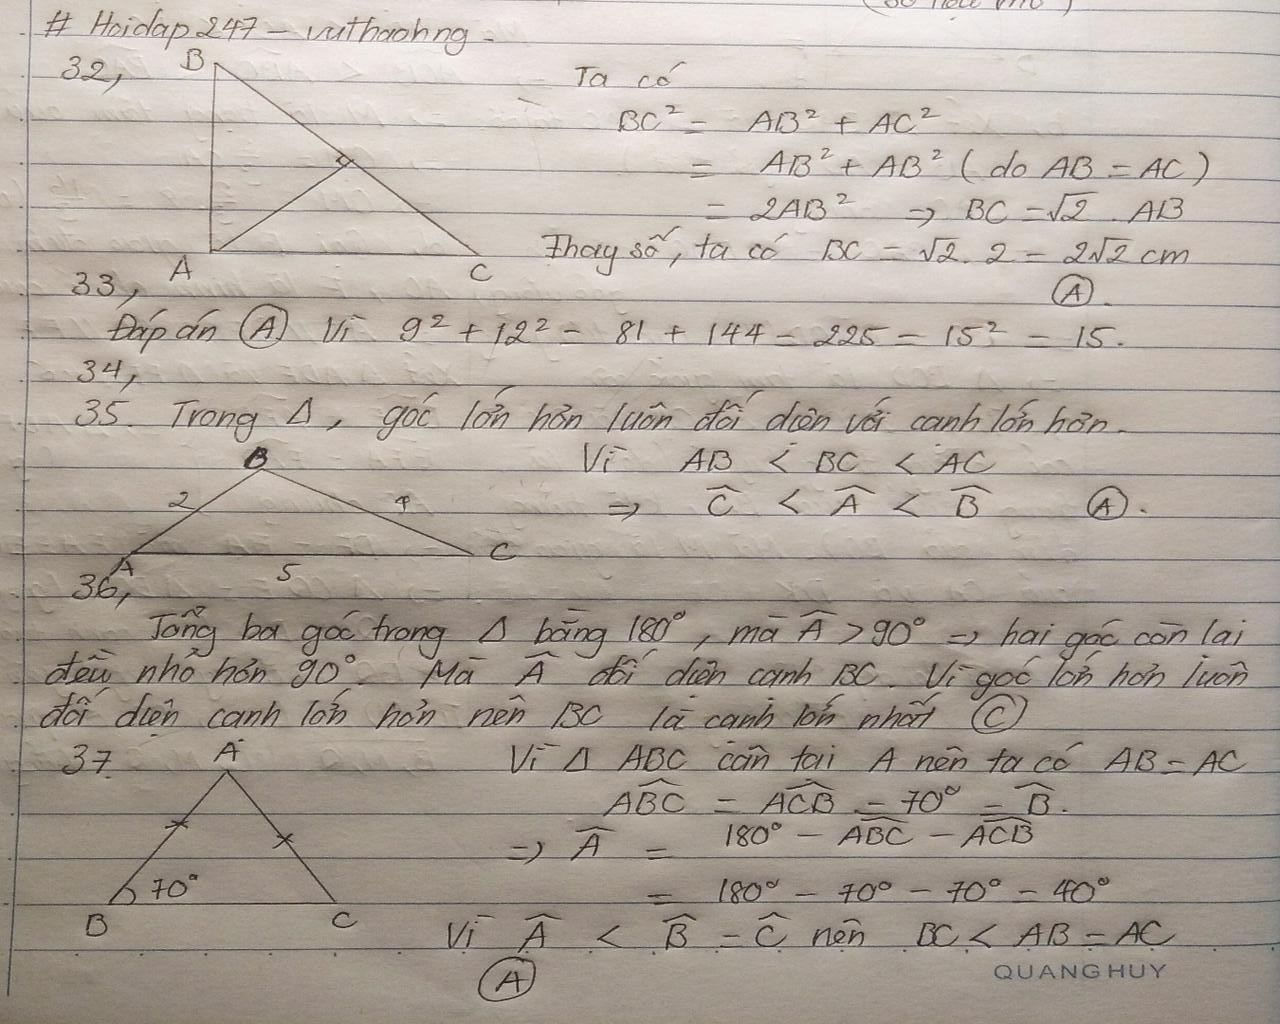 # Hoidap247 – vuthaohng -
32, B
A
C
Ta có
BC² = AB² + AC²
= AB² + AB² ( do AB = AC )
= 2AB² ⇒ BC = √2 . AB
Thay số, ta có BC = √2 . 2 = 2√2 cm
(A).
33,
Đáp án (A) Vì 9² + 12² = 81 + 144 = 225 = 15² = 15.
34,
35. Trong Δ, góc lớn hơn luôn đối diện với cạnh lớn hơn.
B
2
4
A
5
C
Vì AB < BC < AC
⇒ Ĉ < Â < B̂ (A).
36,
Tổng ba góc trong Δ bằng 180°, mà Â > 90° ⇒ hai góc còn lại
đều nhỏ hơn 90°. Mà Â đối diện cạnh BC. Vì góc lớn hơn luôn
đối diện cạnh lớn hơn nên BC là cạnh lớn nhất (C)
37.
A
70°
B
C
Vì Δ ABC cân tại A nên ta có AB = AC
ABC̑ = ACB̑ = 70° = B̂.
⇒ Â = 180° – ABC̑ – ACB̑
= 180° – 70° – 70° = 40°
Vì Â < B̂ = Ĉ nên BC < AB = AC
(A)
QUANG HUY